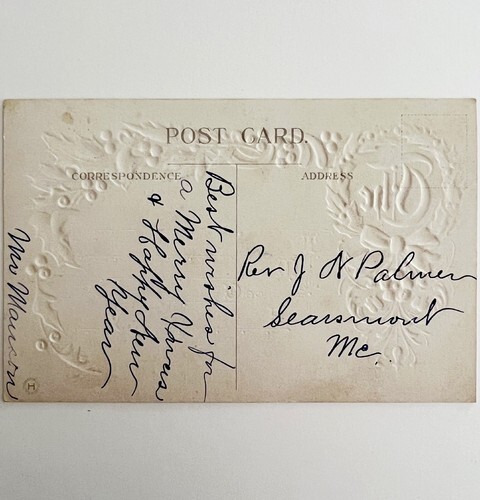 POST CARD.
CORRESPONDENCE
ADDRESS
Best wishes for
a Merry Xmas
& Happy New
Year
Mr
Rev J N Palmer
Searsmont
Me.
H